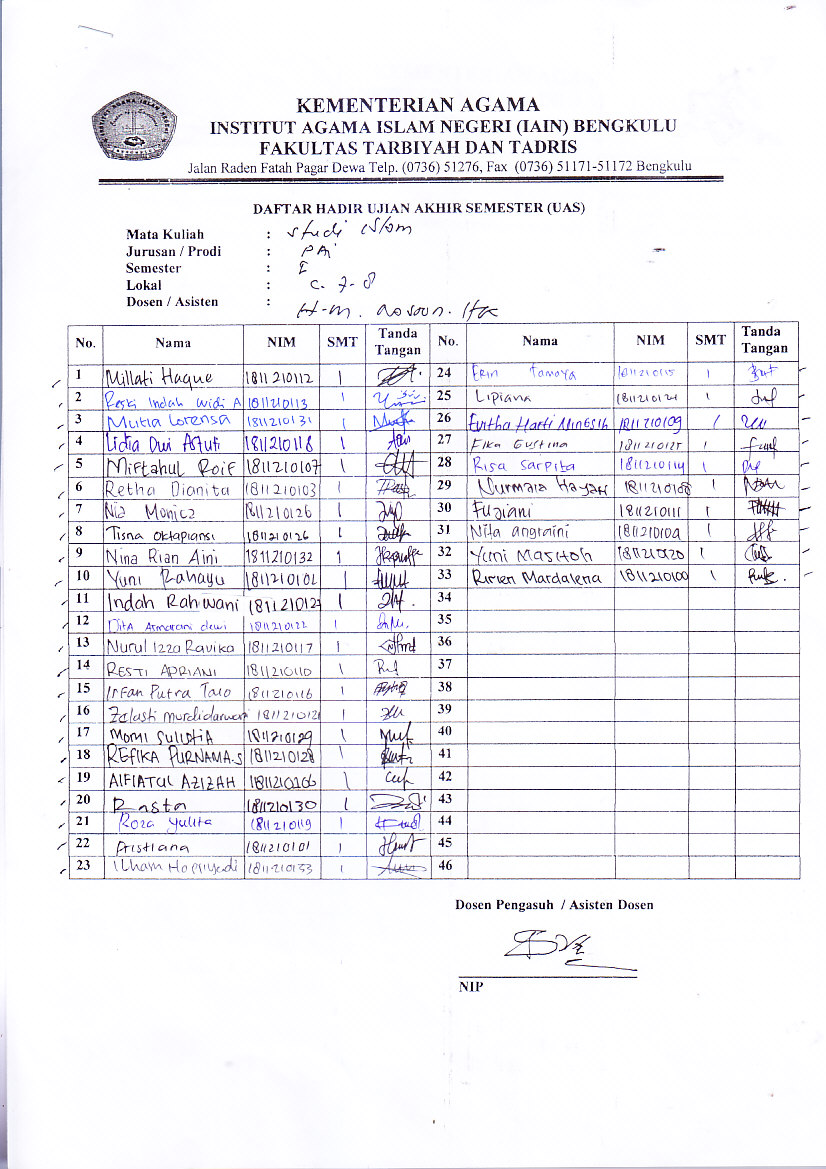 KEMENTERIAN AGAMA
INSTITUT AGAMA ISLAM NEGERI (IAIN) BENGKULU
FAKULTAS TARBIYAH DAN TADRIS
Jalan Raden Fatah Pagar Dewa Telp. (0736) 51276, Fax (0736) 51171-51172 Bengkulu
DAFTAR HADIR UJIAN AKHIR SEMESTER (UAS)
Mata Kuliah : Studi Islam
Jurusan / Prodi : PAI
Semester : I
Lokal : C. 7-8
Dosen / Asisten : H-M.
No. Nama NIM SMT Tanda Tangan No. Nama NIM SMT Tanda Tangan
1 Millati Haque 1811210112 1 24 Erin Tamaya 1811210115 1
2 Reski Indah Widi A 1811210113 1 25 Lipiana 1811210121 1
3 Mutia Lorensa 1811210131 1 26 Harti Ningsih 1811210109 1
4 Lidia Dwi Astuti 1811210118 1 27 Fika Gustina 1811210125 1
5 Miftahul Roif 1811210107 1 28 Risa Sarpita 1811210114 1
6 Retha Dianita 1811210103 1 29 Nurmala Hayati 1811210108 1
7 Nia Monica 1811210126 1 30 Fujiani 1811210111 1
8 Tisna Oktapiansi 1811210126 1 31 Nita angraini 1811210102 1
9 Nina Rian Aini 1811210132 1 32 Yuni Mastoh 1811210120 1
10 Yuni Rahayu 1811210102 1 33 Ririen Mardalena 1811210100 1
11 Indah Rahwani 1811210127 1 34
12 Dita Armarani dewi 1811210122 1 35
13 Nurul Izza Ravika 1811210117 1 36
14 RESTI APRIANI 1811210110 1 37
15 Irfan Putra 1811210116 1 38
16 1811210121 1 39
17 Momi Sulistia 1811210129 1 40
18 REFIKA PURNAMA.S 1811210128 1 41
19 AlFIATUL AZIZAH 1811210106 1 42
20 Rasta 1811210130 1 43
21 Roza Yulita 1811210119 1 44
22 Pristiana 1811210101 1 45
23 Ilham 1811210133 1 46
Dosen Pengasuh / Asisten Dosen
NIP